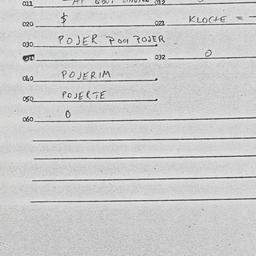 011 012
020 $ 021 KLOCTE = -
030 POJER POOI POJER
032 0
040 POJERIM
050 POJERTE
060 0